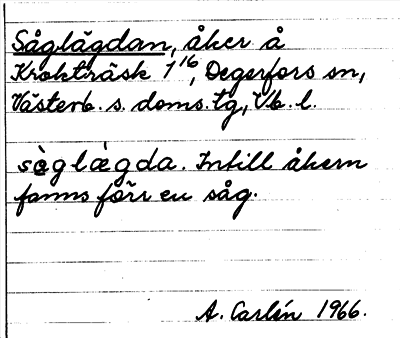 Såglägdan, åker å
Krokträsk 1¹⁶, Degerfors sn,
Västerb. s. doms. tg, Vb. l.
sèglègda. Intill åkern
fanns förr en såg.
A. Carlén 1966.